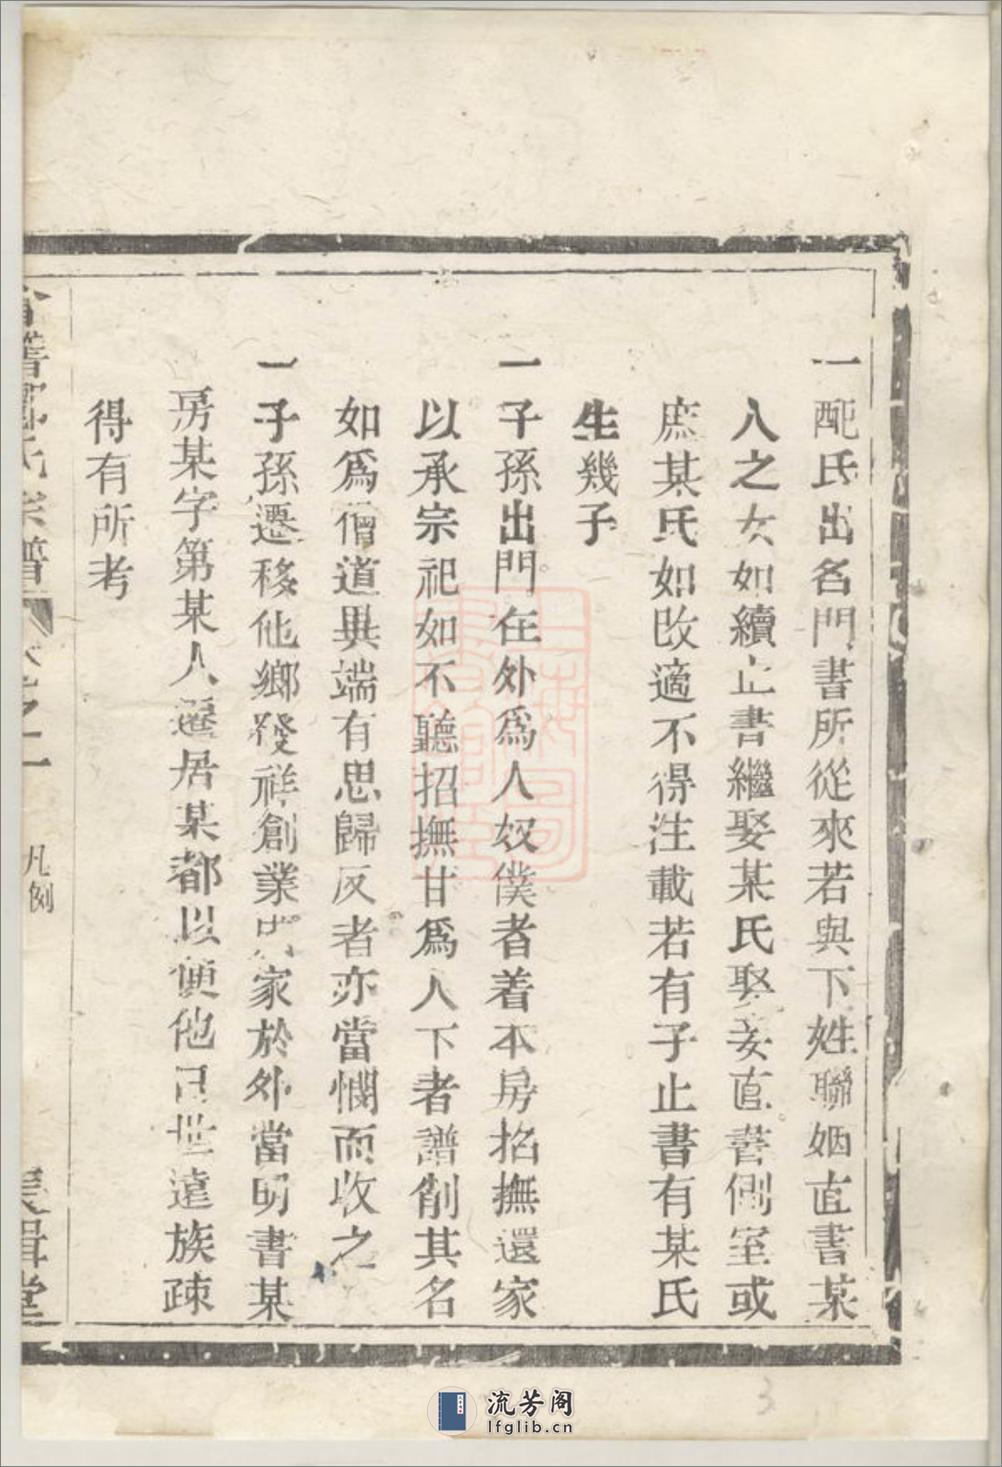 一配氏出名門書所從來若與下姓聯姻直書某
人之女如續止書繼娶某氏娶妾直書側室或
庶某氏如改適不得注載若有子止書有某氏
生幾子
一子孫出門在外爲人奴僕者着本房招撫還家
以承宗祀如不聽招撫甘爲人下者譜削其名
如爲僧道異端有思歸反者亦當憫而收之
一子孫遷移他鄉發祥創業家於外當明書某
房某字第某人遷居某都以便他日世遠族疎
得有所考
氏宗譜
之一
凡例
堂
流芳阁
lfglib.cn
3